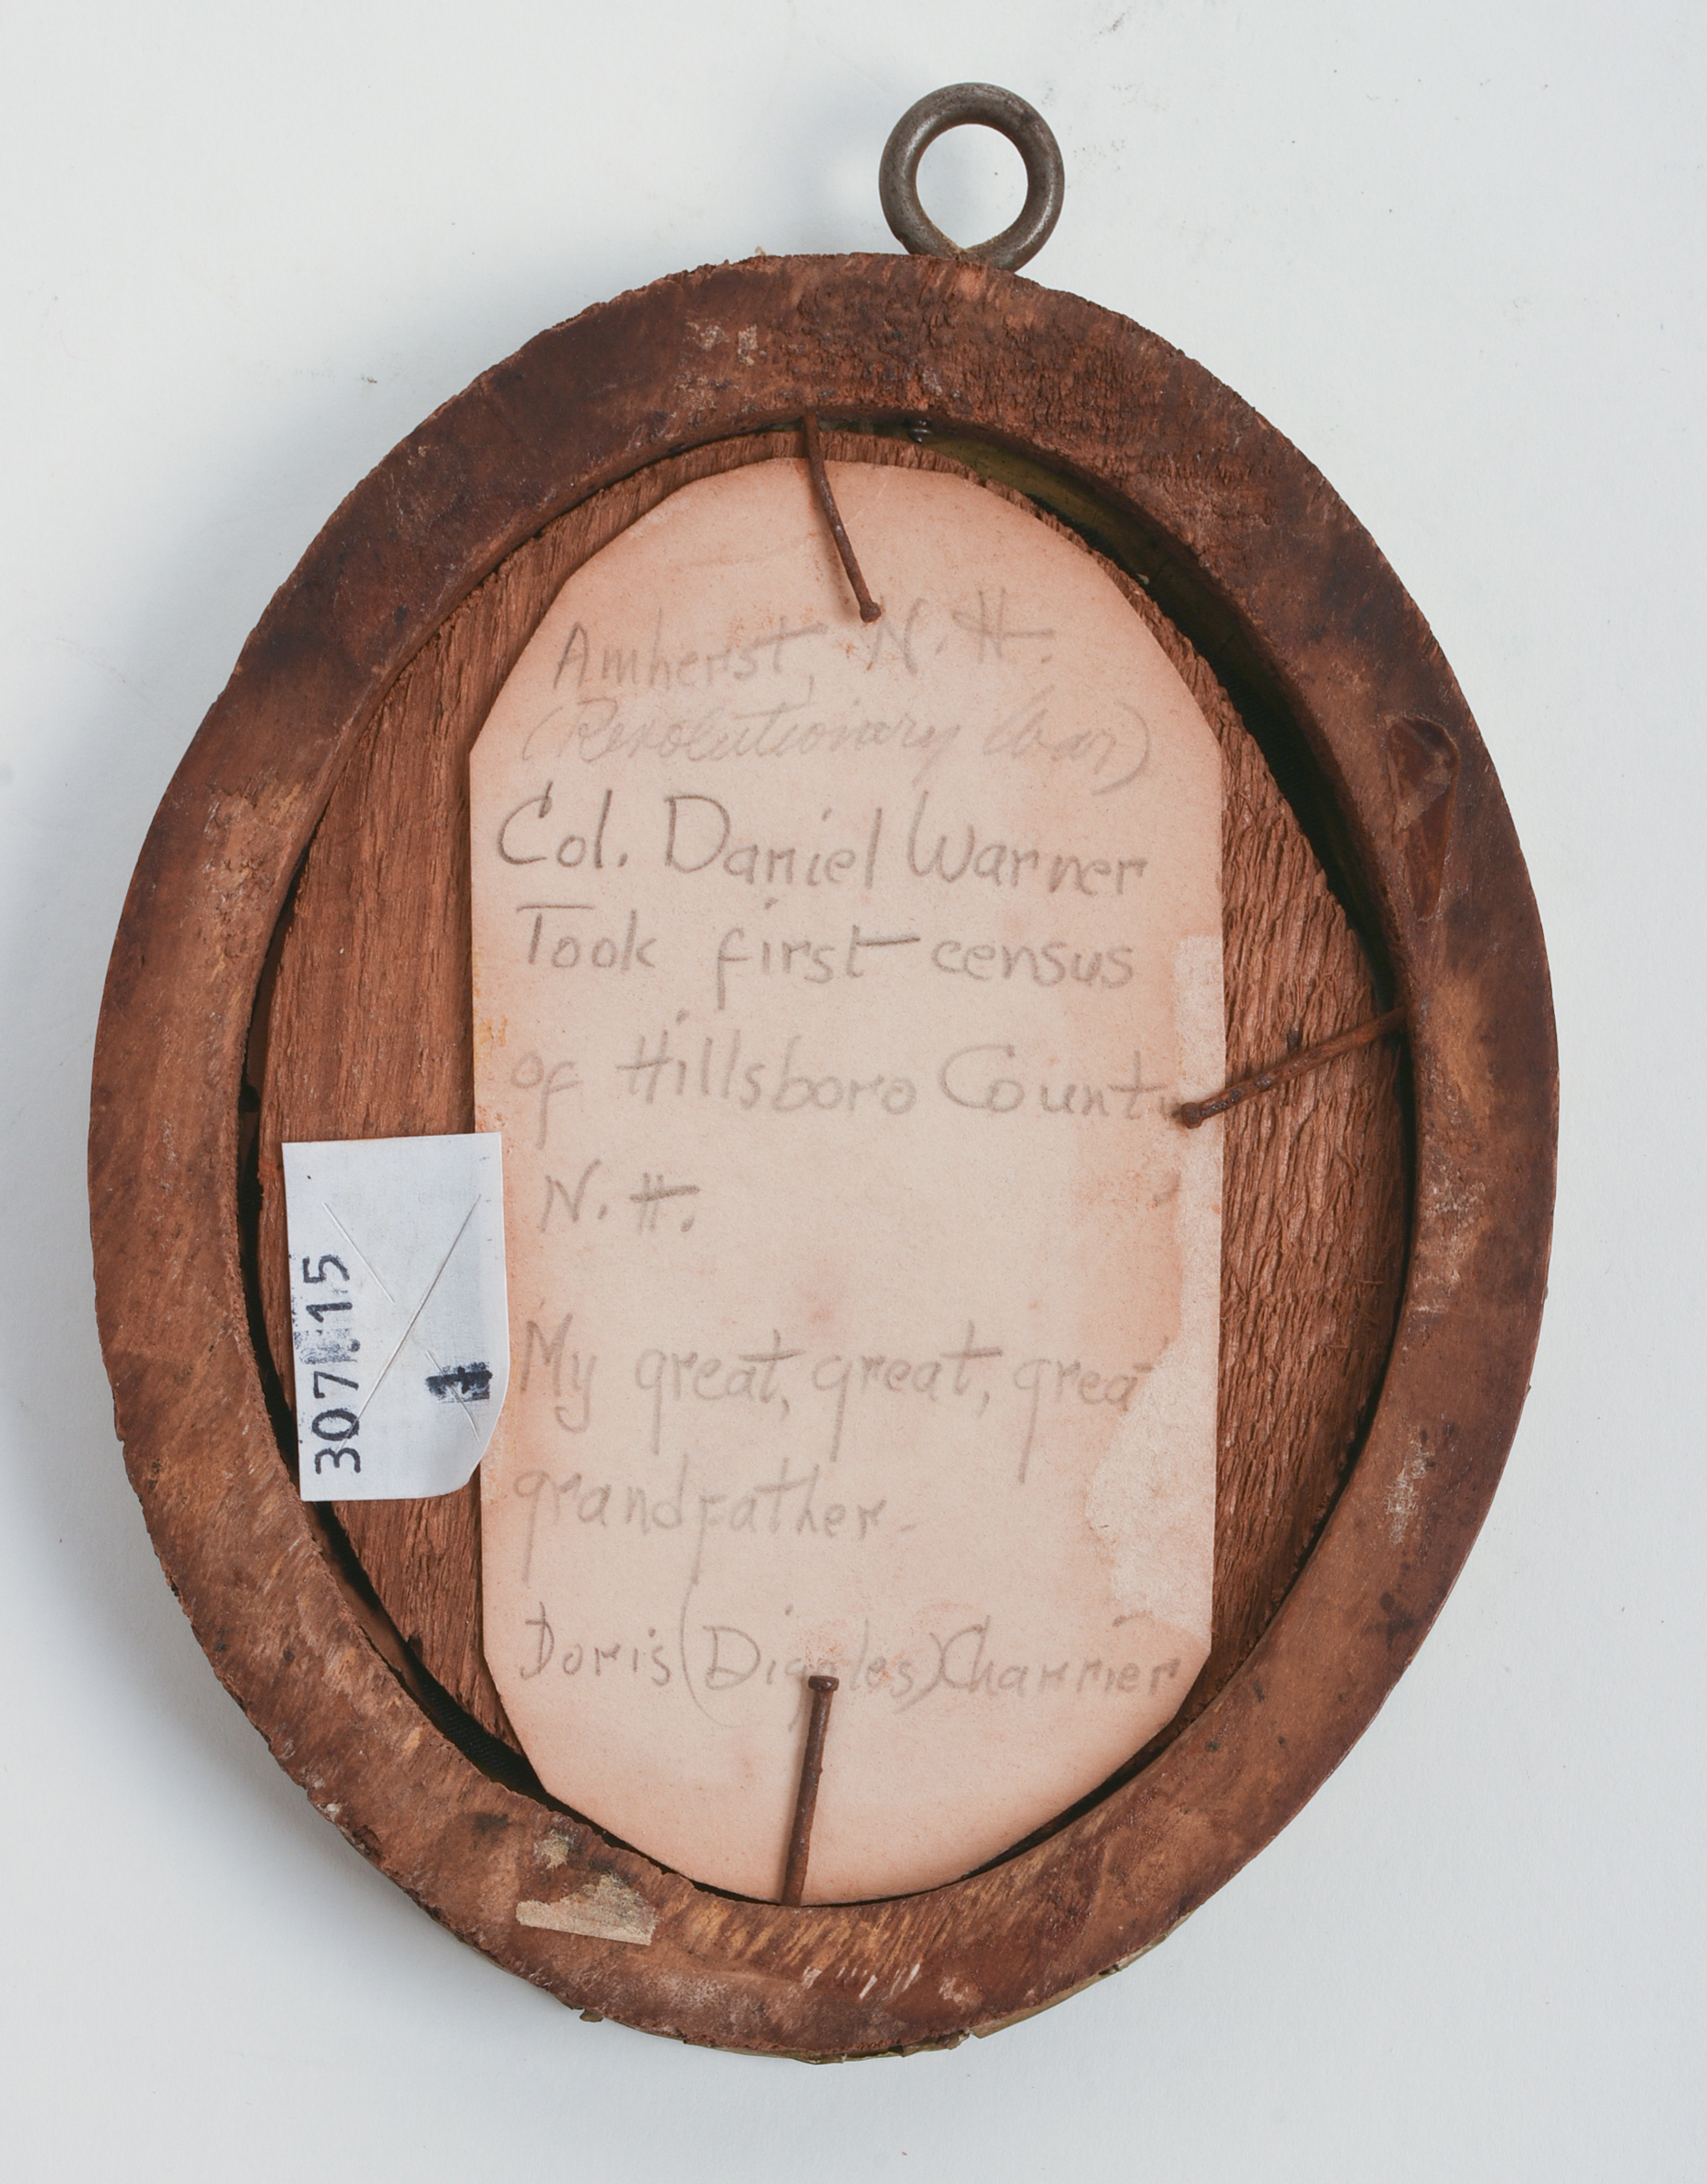 Amherst, N.H.
(Revolutionary War)
Col. Daniel Warner
Took first census
of Hillsboro County
N.H.
My great, great, grea
grandfather.
Doris (Diggles) Charrier
307.15
1